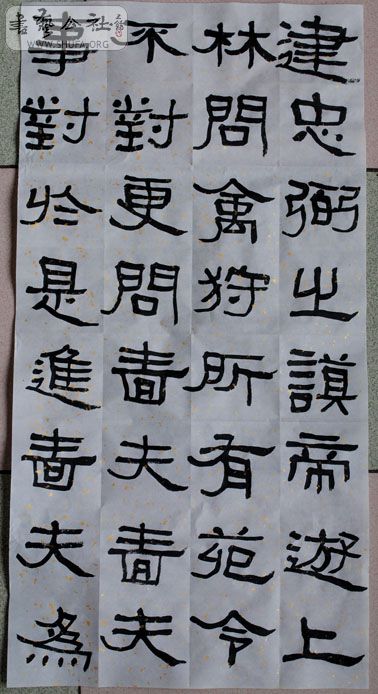 建忠弼之謨帝遊上
林問禽狩所有苑令
不對更問嗇夫嗇夫
事對於是進嗇夫為
書藝公社
WWW.SHUFA.ORG